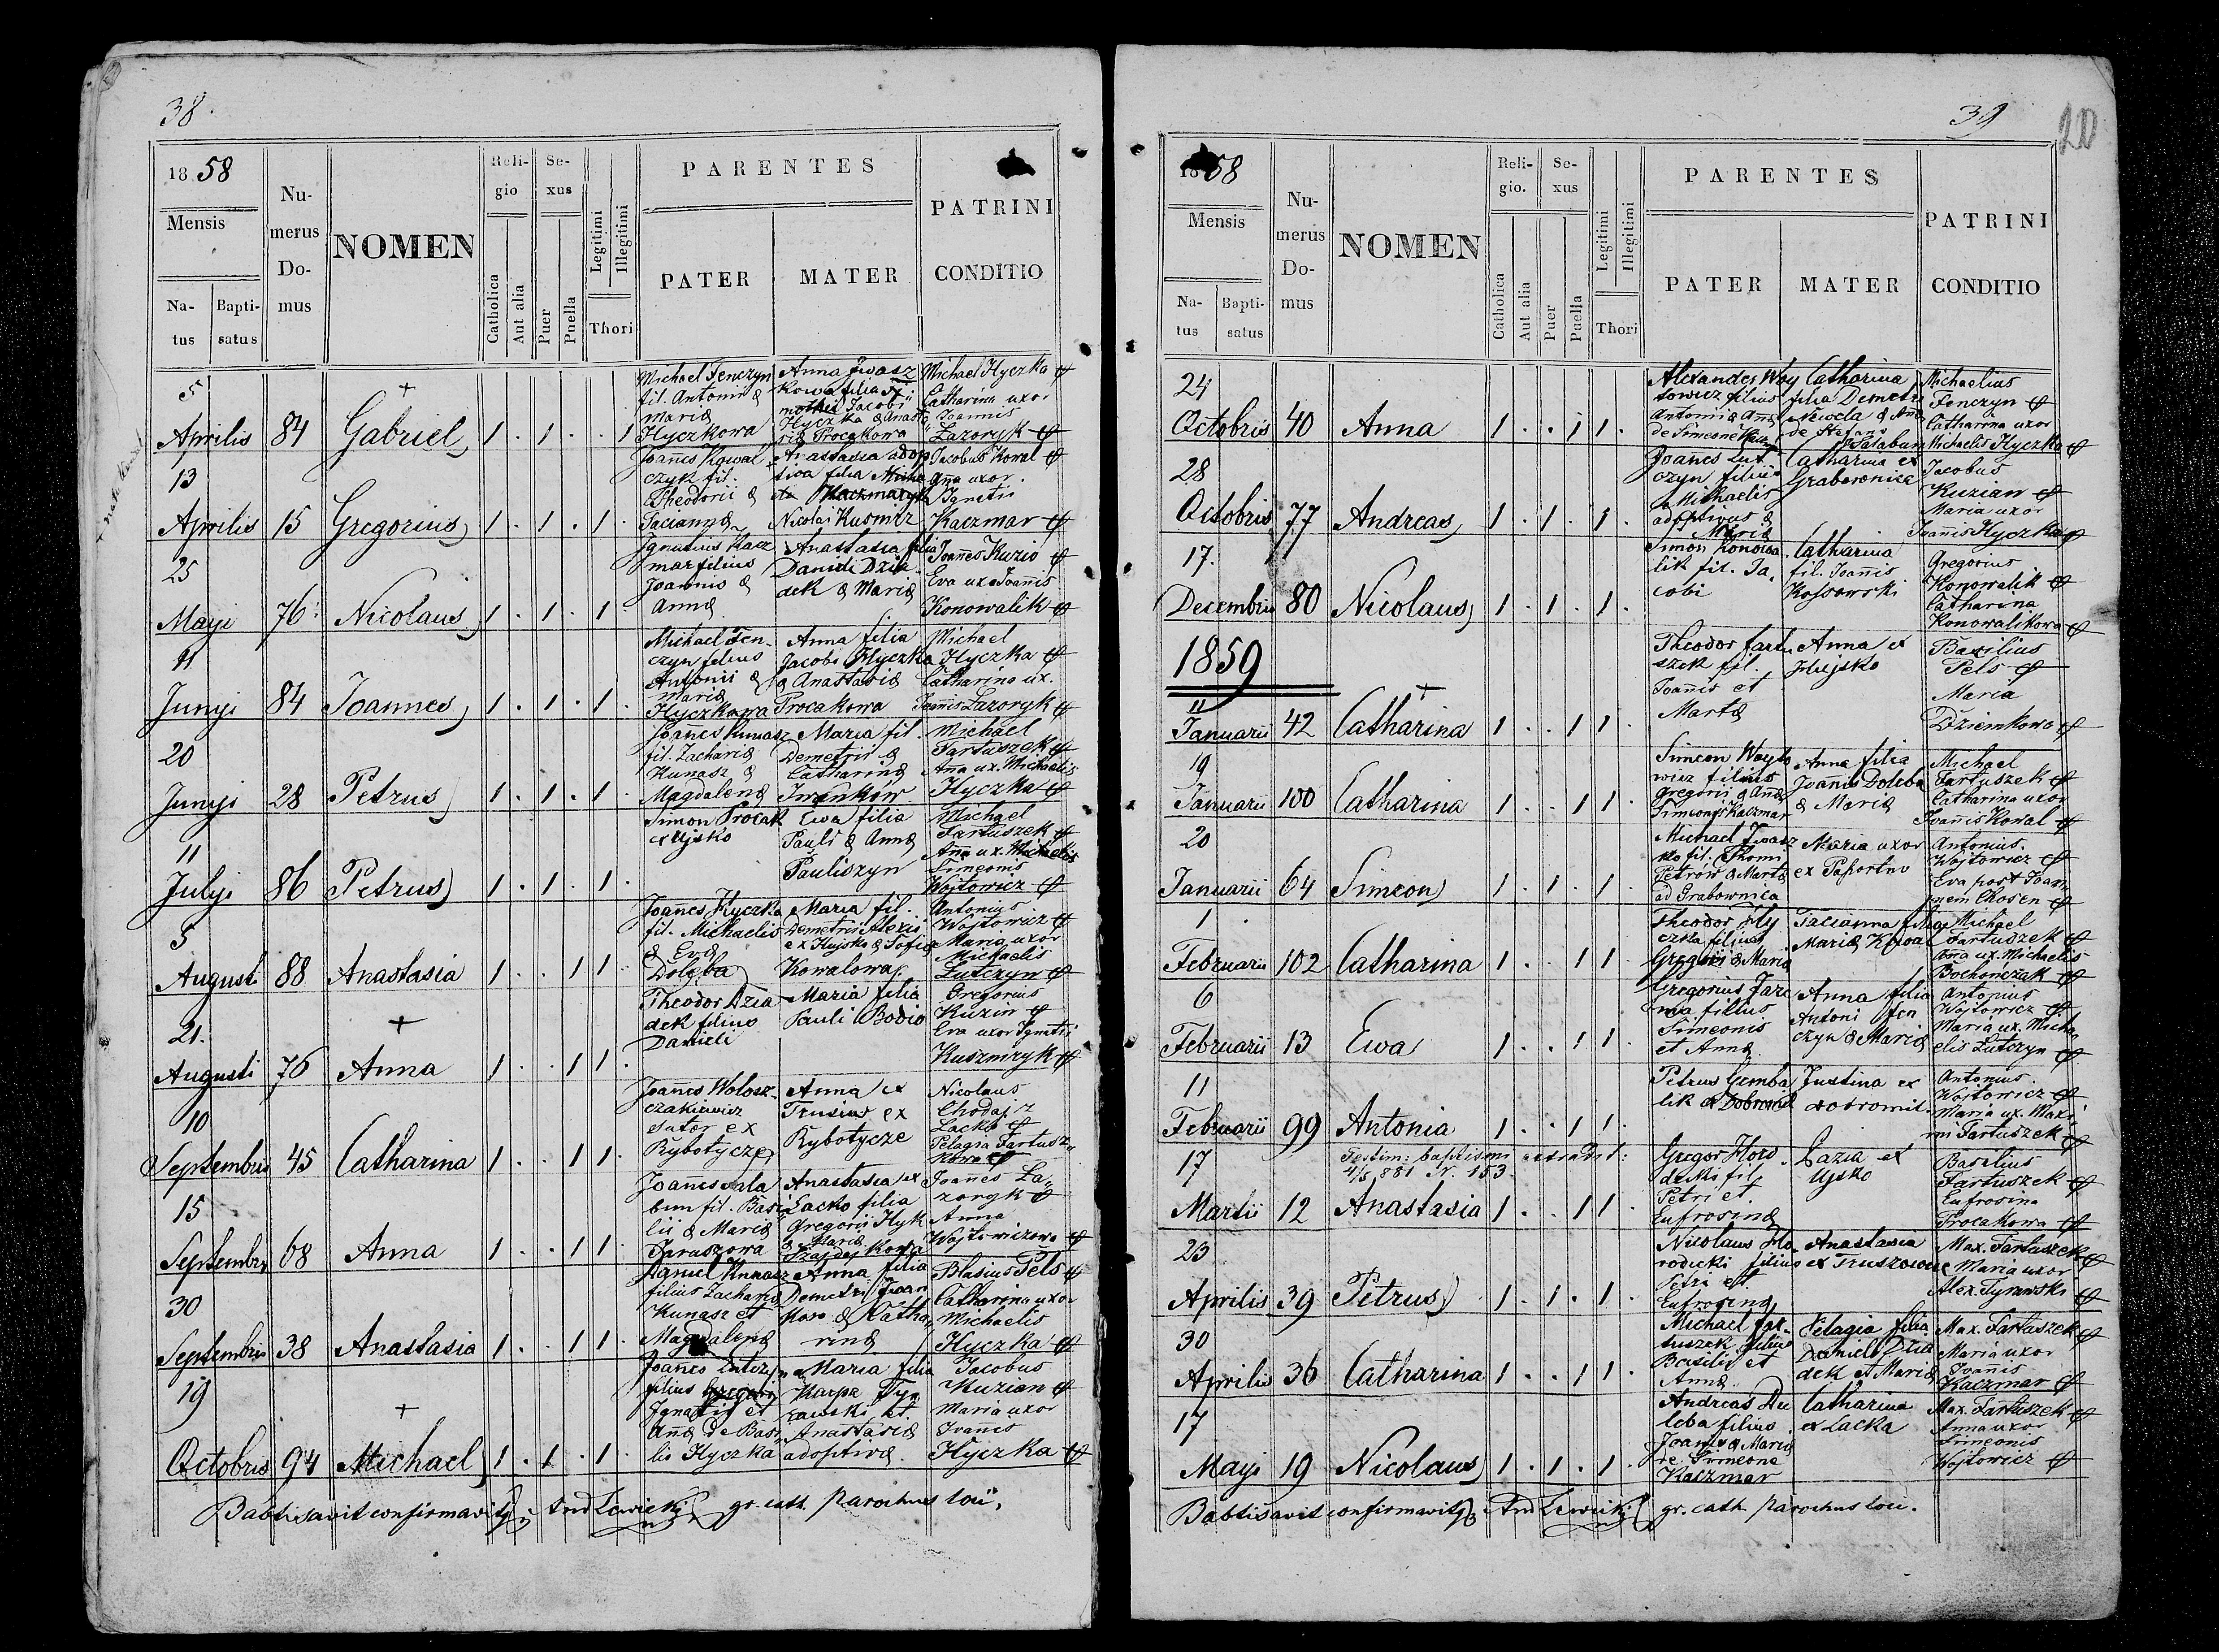 38.
18 58
Mensis
Na-
tus
Bapti-
satus
Nu-
merus
Do-
mus
NOMEN
Reli-
gio
Catholica
Aut alia
Se-
xus
Puer
Puella
Legitimi
Illegitimi
Thori
PARENTES
PATER
MATER
PATRINI
CONDITIO
5
Aprilis 84 Gabriel 1 . 1 . . 1
Michael Fenczyn
fil. Antonii &
Mariæ
Hyczkowa
Anna Iwasz
kowa filia
Jacobi
Hyczka & Anasta
Procakowa
Michael Hyczka
Catharina uxor
Joannis
Lazoryk
13
Aprilis 15 Gregorius 1 . 1 . 1 .
Joañes Kowal
czyk fil.
Theodorii &
Taciannæ
Anastasia adop
tiva filia Micha
Kaczmaryk
Nicolai Kusmirz
Jacobus Kowal
Aña uxor
Ignatii
Kaczmar
25
Mayi 76 Nicolaus 1 . 1 . 1 .
Ignatius Kacz
mar filius
Joannis &
Annæ
Anastasia filia
Danieli Dzia
dek & Mariæ
Joañes Kuzio
Eva uxor Joañis
Konowalik
11
Junyi 84 Joannes 1 . 1 . 1 .
Michael Fen-
czyn filius
Antonii &
Mariæ
Hyczkowa
Anna filia
Jacobi Hyczka
& Anastasiæ
Procakowa
Michael
Hyczka
Catharina ux.
Joañis Lazoryk
20
Junyi 28 Petrus 1 . 1 . 1 .
Joañes Kunasz
fil. Zachariæ
Kunasz &
Magdalenæ
Maria fil.
Demetrii &
Catharinæ
Iwanków
Michael
Fartuszek
Aña ux. Michaelis
Hyczka
11
Julyi 86 Petrus 1 . 1 . 1 .
Simon Procak
ex Ujsko
Ewa filia
Pauli & Annæ
Pauliszyn
Michael
Fartuszek
Aña ux. Michaelis
Simeonis
Wojtowicz
5
Augusti 88 Anastasia 1 . . 1 1 .
Joañes Hyczka
fil. Michaelis
& Evæ
Dolęba
Maria fil.
Demetrii Alexi
ex Hujsko & Sofiæ
Kowalowa
Antonius
Wojtowicz
Maria uxor
Michaelis
Łutczyn
21.
Augusti 76 Anna 1 . . 1 1 .
Theodor Dzia
dek filius
Danieli
Maria filia
Pauli Bodio
Gregorius
Kuzin
Eva uxor Ignatii
Kuszmryk
10
Septembris 45 Catharina 1 . . 1 1 .
Joañes Wolosz-
czakiewicz
sutor ex
Rybotycze
Anna ex
Trusiow ex
Rybotycze
Nicolaus
Chodaj
Lacko
Pelagia Fartusz
kowa
15
Septembris 68 Anna 1 . . 1 1 .
Joañes Sala
bun fil. Basi
lii & Mariæ
Jaruszowa
Anastasia ex
Lacko filia
Gregorii Hyk
& Mariæ
Joañes La
zoryk
Anna
Wojtowiczowa
30
Septembris 38 Anastasia 1 . . 1 1 .
Daniel Kunasz
filius Zachariæ
Kunasz et
Magdalenæ
Anna filia
Demetri Iwan
kow & Catha
rinæ
Blasius Pels
Catharina uxor
Michaelis
Hyczka
19
Octobris 94 Michael 1 . 1 . 1 .
Joañes Lutczyn
filius
Ignatii et
Aña de Basi
lio Hyczka
Maria filia
Karpa Tyr
rawski et
Anastasiæ
adoptivæ.
Jacobus
Kuzian
Maria uxor
Ivañis
Hyczka
Babtisavit confirmavitq And Lewicki gr. cath. Parochus loci.
39
20
18 58
Mensis
Na-
tus
Bapti-
satus
Nu-
merus
Do-
mus
NOMEN
Reli-
gio.
Catholica
Aut alia
Se-
xus
Puer
Puella
Legitimi
Illegitimi
Thori
PARENTES
PATER
MATER
PATRINI
CONDITIO
24
Octobris 40 Anna 1 . . 1 1 .
Alexander Woy
towicz filius
Antonii & Añæ
de Simeone
Catharina
filia Demetri
& Añæ
de Stefano
Salabun
Michaelius
Fenczyn
Catharina uxor
Michaelis Hyczka
28
Octobris 77 Andreas 1 . 1 . 1 .
Joañes Lut
czyn filius
Michaelis
adoptivus &
Mariæ
Catharina ex
Grabownica
Jacobus
Kuzian
Maria uxor
Ivañis Hyczka
17.
Decembris 80 Nicolaus 1 . 1 . 1 .
Simon Konowa
lik fil. Ja
cobi
Catharina
fil. Joañis
Kossowski
Gregorius
Konowalik
Catharina
Konowalikowa
1859
11
Januarii 42 Catharina 1 . . 1 1 .
Theodor Fartu
szek fil.
Joañis et
Martæ
Anna ex
Hujsko
Basilius
Pels
Maria
Dziemkowa
19
Januarii 100 Catharina 1 . . 1 1 .
Simeon Woyto
wicz filius
Gregorii & Añæ
Simeonis Kaczmar
Anna filia
Joanis Doleba
& Mariæ
Michael
Fartuszek
Catharina uxor
Ivañis Kowal
20
Januarii 64 Simeon 1 . 1 . 1 .
Michael Iwasz
ko fil. Thomi
Petrów & Martæ
ad Grabownica
Maria uxor
ex Paportno
Antonius.
Wojtowicz
Eva post Joan
nem Chosen
1
Februarii 102 Catharina 1 . . 1 1 .
Theodor Hy
czka filius
Gregorii & Mariæ
Tacianna filia
Mariæ Kowal
Michael
Fartuszek
Aña ux. Michaelis
Bochonczak
6
Februarii 13 Ewa 1 . . 1 1 .
Gregorius Jare
ma filius
Simeonis
et Annæ
Anna filia
Antoni Fen
czyn & Mariæ
Antonius
Wojtowicz
Maria ux. Micha
elis Lutczyn
11
Februarii 99 Antonia 1 . . 1 1 .
Petrus Gemba
lik ex Dobromil
Justina ex
Dobromil
Antonius.
Wojtowicz
Maria ux. Maxi
mi Fartuszek
17
Testim: baptismi extradit:
4/5 881 N. 153.
Martii 12 Anastasia 1 . . 1 1 .
Gregor Horo
decki fil.
Petri et
Eufrosinæ
Łazia ex
Ujsko
Basilius
Fartuszek
Eufrosina
Procakowa
23
Aprilis 39 Petrus 1 . 1 . 1 .
Nicolaus Ho
rodecki filius
Petri et
Eufrosinæ
Anastasia
ex Truszowice
Max. Fartuszek
Maria uxor
Alex. Tyrawski
30
Aprilis 36 Catharina 1 . . 1 1 .
Michael Far-
tuszek filius
Basilii et
Annæ
Pelagia filia
Danieli Dzia
dek et Mariæ
Max. Fartuszek
Maria uxor
Ivañis
Kaczmar
17
Mayi 19 Nicolaus 1 . 1 . 1 .
Andreas Du
leba filius
Joanis & Mariæ
de Simeone
Kaczmar
Catharina
ex Lacka
Max. Fartuszek
Anna uxor
Simeonis
Wojtowicz
Babtisavit confirmavitq And Lewicki gr. cath Parochus loci.